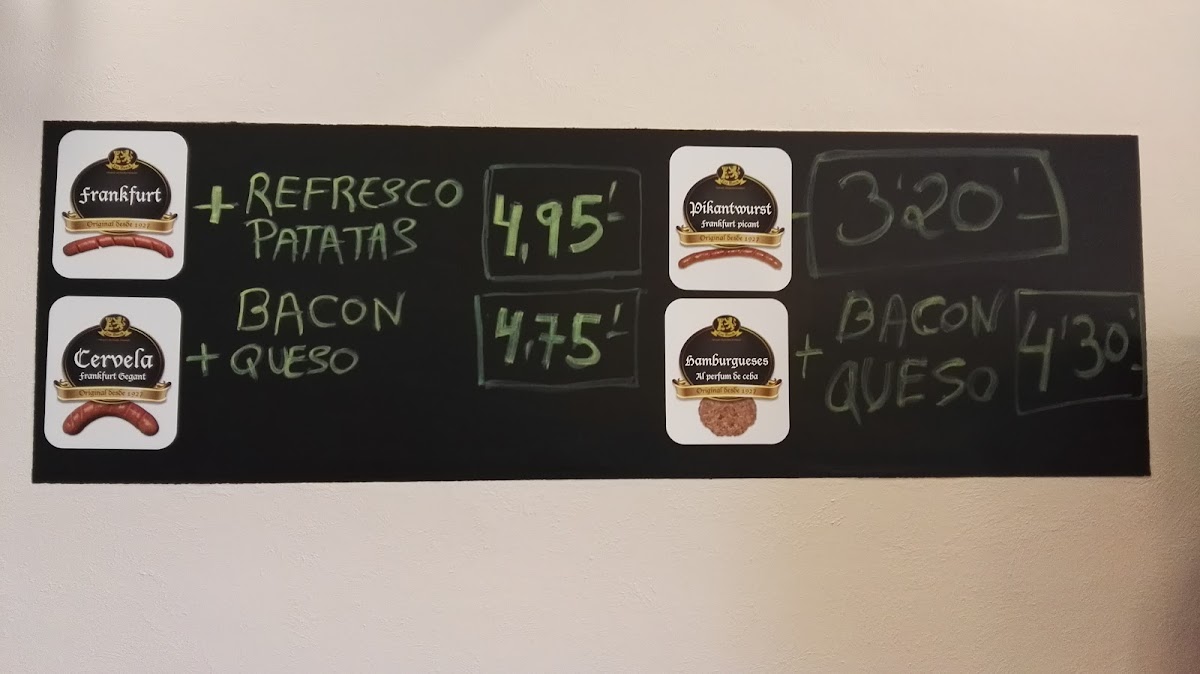 Frankfurt
Original desde 1927
+ REFRESCO
PATATAS
4,95'-
Cervela
Frankfurt Gegant
Original desde 1927
BACON
+ QUESO
4,75'-
Pikantwurst
Frankfurt picant
Original desde 1927
- 3'20'-
Hamburgueses
Al perfum de ceba
Original desde 1927
BACON
+ QUESO
4'30'-